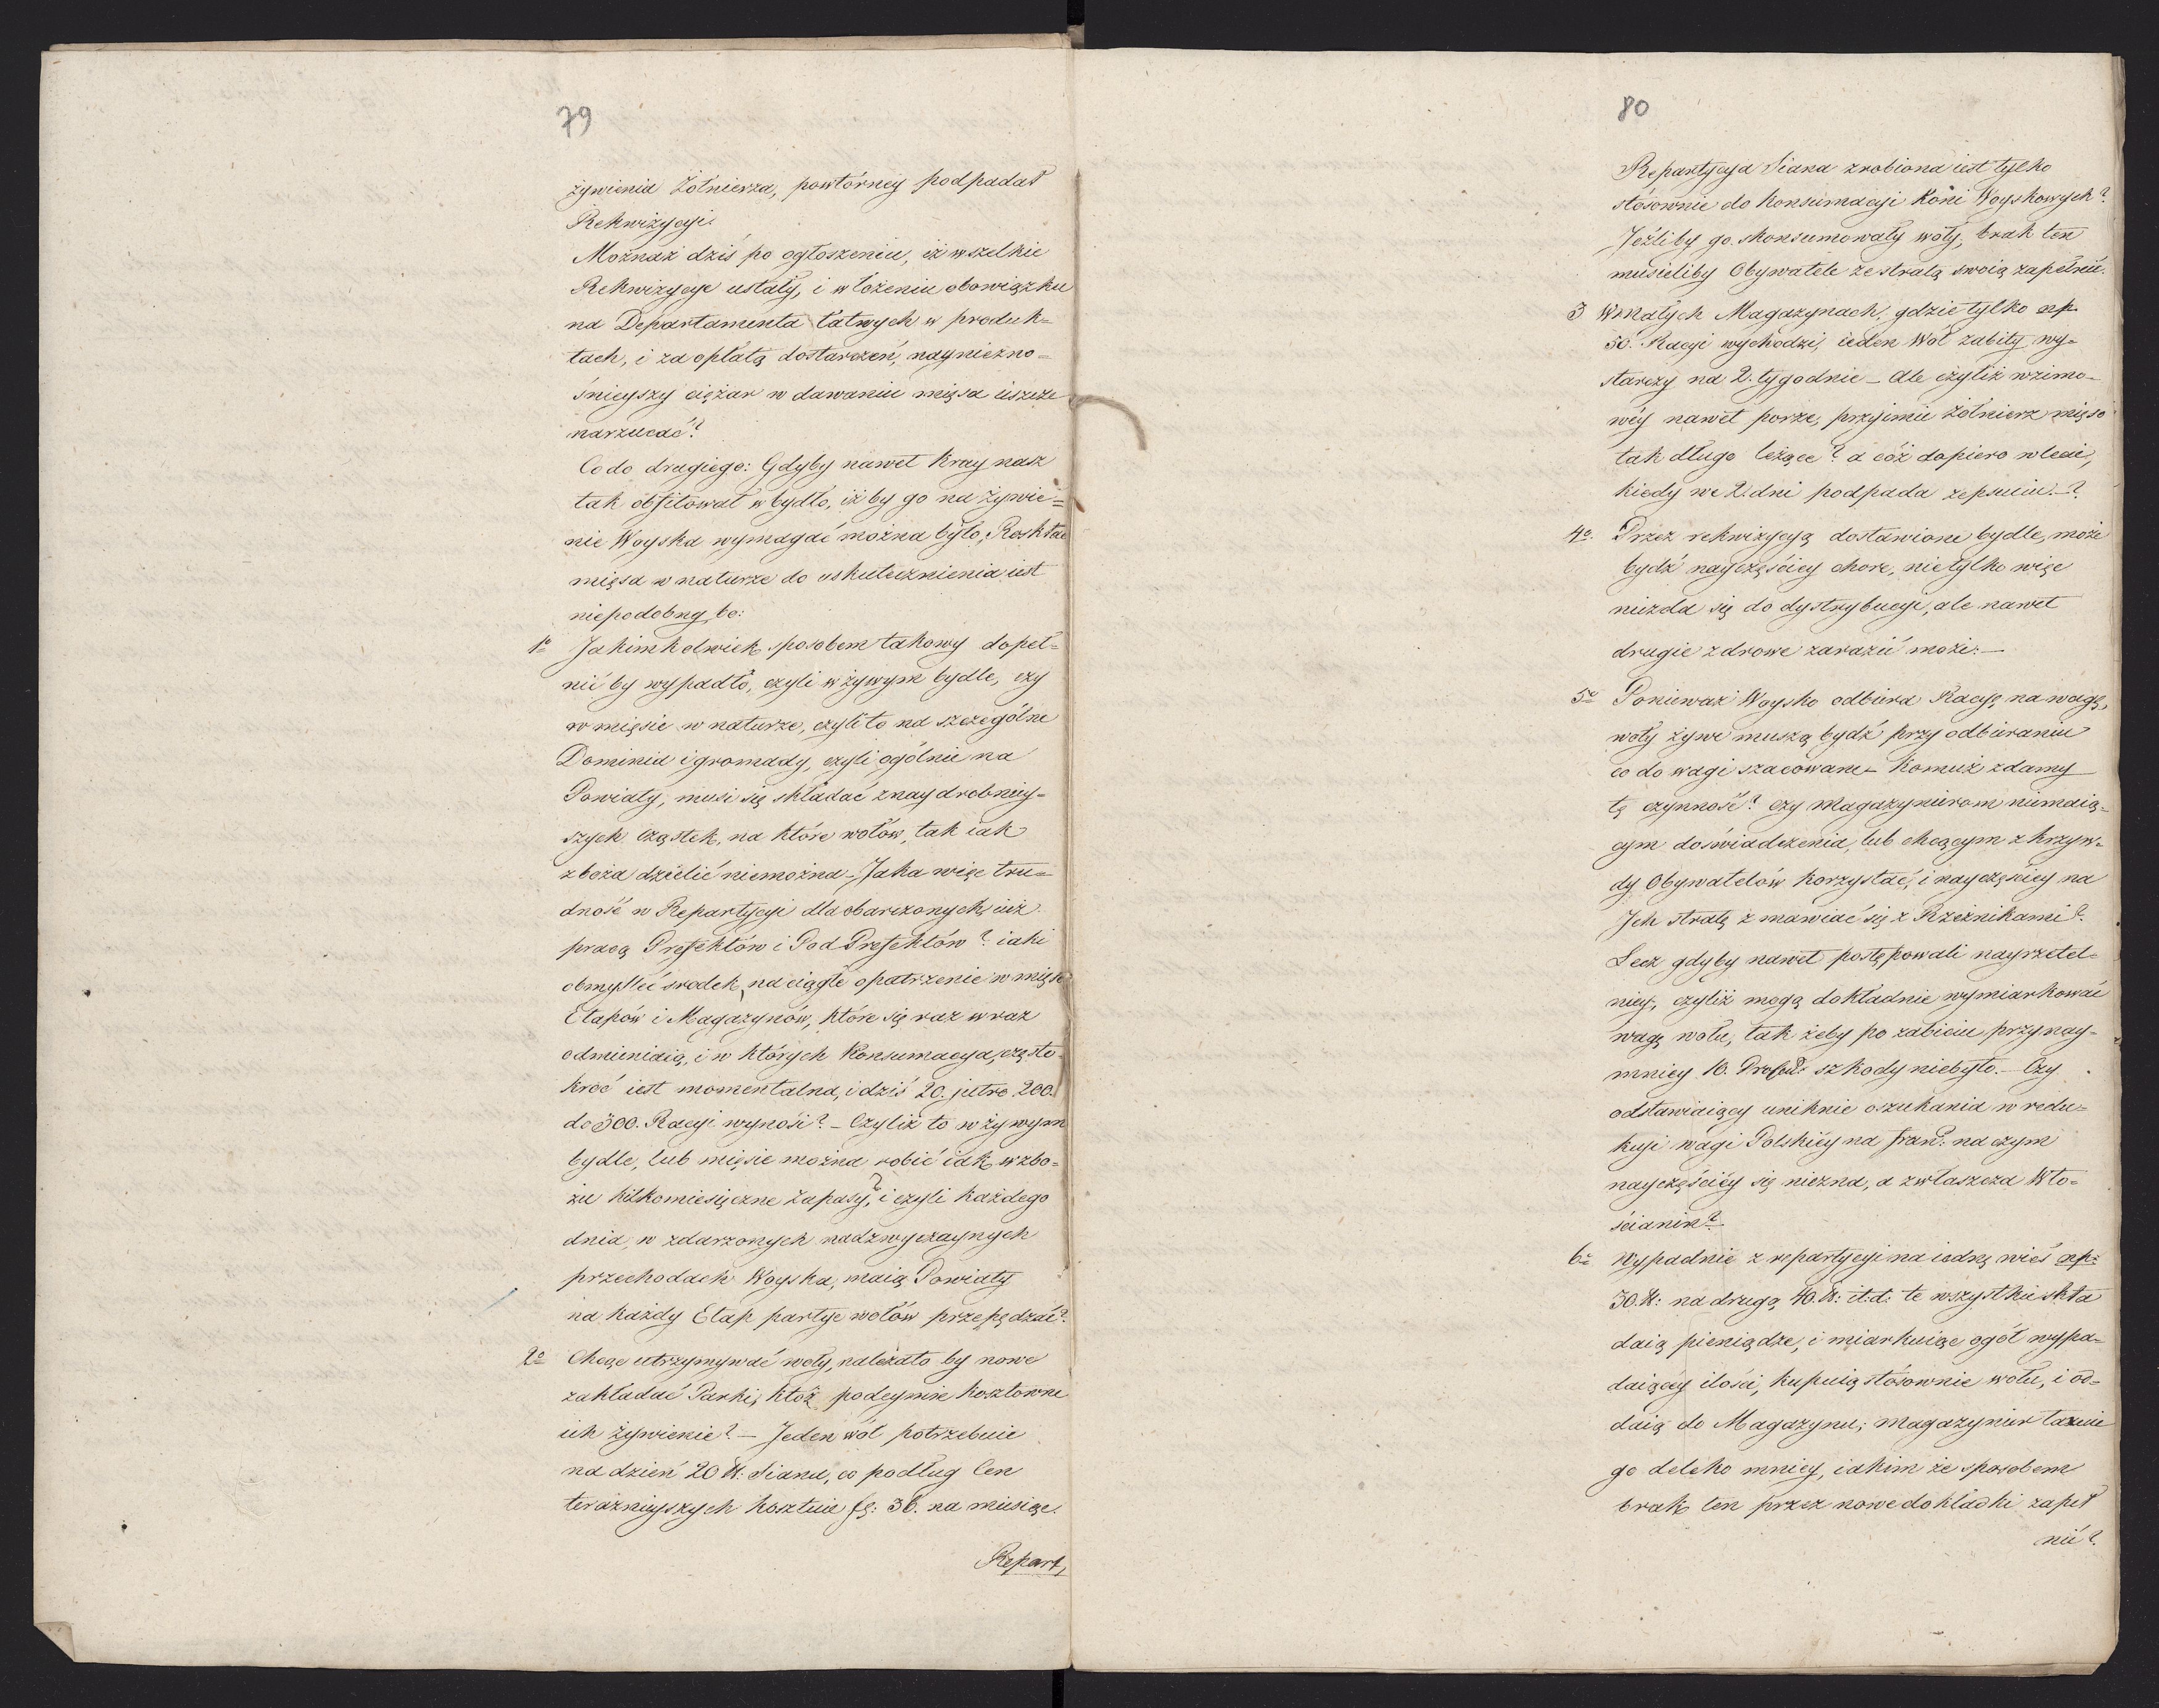 79
żywienia Żołnierza, powtórney podpadał
Rekwizycyi.
Możnaż dziś po ogłoszeniu, iż wszelkie
Rekwizycye ustały, i włożeniu obowiązku
na Departamenta łatwych w produk=
tach, i za opłatą dostarczeń, nayniezno=
śnieyszy ciężar w dawaniu mięsa ieszcze
narzucać?
Co do drugiego: Gdyby nawet Kray nasz
tak obfitował w bydło, iż by go na żywie=
nie Woyska wymagać można było, Rozkład
mięsa w naturze do uskutecznienia iest
niepodobny, bo:
1o Jakimkolwiek sposobem takowy dopeł=
nić by wypadło, czyli w żywym bydle, czy
w mięsie w naturze, czyli to na szczególne
Dominia i gromady, czyli ogólnie na
Powiaty, musi się składać z naydrobniey=
szych cząstek, na które wołów, tak iak
zboża dzielić niemożna – Jaka więc tru=
dność w Repartycyi dla obarczonych iuż
pracą Prefektów i Pod Prefektów? iaki
obmyslić srodek, na ciągłe opatrzenie w mięso
Etapów i Magazynów, które się raz w raz
odmieniaią, i w których Konsumacya, często
kroć iest momentalna, i dziś 20. jutro 200.
do 300. Racyi wynosi? – Czyliż to w żywym
bydle, lub mięsie można robić iak w zbo=
żu kilkomiesięczne zapasy? i czyli każdego
dnia, w zdarzonych nadzwyczaynych
przechodach Woyska, maią Powiaty
na każdy Etap partye wołów przepędzać?
2o Chcąc utrzymywać woły, należało by nowe
zakładać Parki, któż podeymie kosztowne
ich żywienie? – Jeden wół potrzebuie
na dzień 20 ℔. Siana, co podług Cen
teraznieyszych kosztuie fl: 36. na miesiąc.
Repart,
80
Repartycya Siana zrobiona iest tylko
stósownie do konsumacyi Koni Woyskowych?
Jeźliby go skonsumowały woły, brak ten
musieliby Obywatele ze stratą swoią zapełnić.
3 W małych Magazynach, gdzie tylko np.
50. Racyi wychodzi, ieden Wół zabity wy=
starczy na 2. tygodnie – Ale czyliż w zimo=
wéy nawet porze, przyimie żołnierz mięso
tak długo leżące? a cóż dopiero w lecie,
kiedy we 2. dni podpada zepsuciu. – ?
4o. Przez rekwizycyą dostawione bydle, może
bydź nayczęściey chore, nietylko więc
niezda się do dystrybucyi, ale nawet
drugie zdrowe zarazić może. –
5o Ponieważ Woysko odbiera Racye na wagę,
woły żywe muszą bydź przy odbieraniu
co do wagi szacowane – Komuż zdamy
tę czynność? czy Magazynierom niemaią=
cym doświadczenia, lub chcącym z krzyw=
dy Obywatelów korzystać, i nayczęściey na
Ich stratę zmawiać się z Rzeźnikami?
Lecz gdyby nawet postępowali nayrzetel=
niey, czyliż mogą dokładnie wymiarkować
wagę wołu, tak żeby po zabiciu przynay=
mniey 10. Procent: szkody niebyło. – Czy
odstawiaiący uniknie oszukania w redu=
kcyi wagi Polskiéy na fran: na czym
nayczęściéy się niezna, a zwłaszcza Wło=
ścianin?
6o Wypadnie z repartycyi na iednę wieś np:
30. ℔: na drugą 40. ℔: it:d: te wszystkie skła
daią pieniądze, i miarkuiąc ogół wypa=
daiącey ilości, kupuią stósownie wołu, i od=
daią do Magazynu; Magazynier taxuie
go daleko mniey, iakim że sposobem
brak ten przez nowe dokładki zapeł
nić?